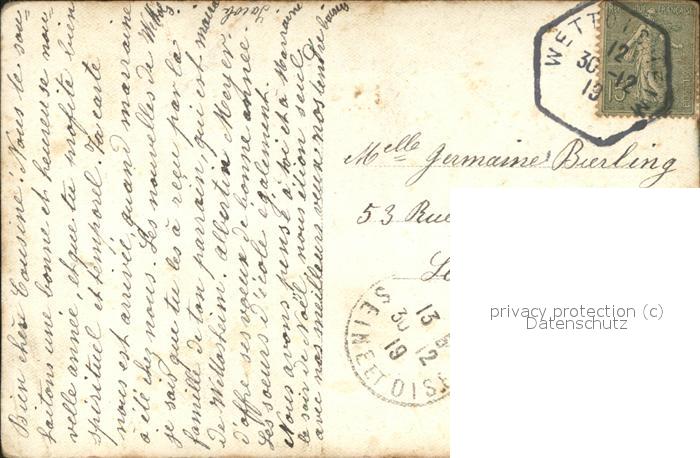 Bien chère Cousine! Nous te sou-
haitons une bonne et heureuse nou-
velle année, et que tu profite bien
spirituel et temporel. Ta carte
nous est arrivé, quand marraine
a été chez nous. Les nouvelles de
je sais que tu les a reçu par la
famille de ton parrain, qui est
de Willotsin. Meyer
d'offre ses voeux de bonne année.
Les soeurs d'école également.
Nous avons pensé à toi et à Marraine
le soir de Noël, nous étion seul
avec nos meilleurs voeux nos tendre baisers
Jacob
WETTOLSHEIM
12
30-12
19
REPUBLIQUE FRANÇAISE
15
Melle Germaine Bierling
53 Rue
13
30 12
19
SEINE ET OISE
privacy protection (c)
Datenschutz